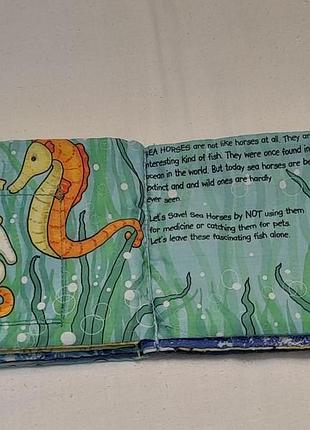 SEA HORSES are not like horses at all. They are
interesting kind of fish. They were once found in
ocean in the world. But today sea horses are be
extinct and and wild ones are hardly
ever seen.
Let's save! Sea Horses by NOT using them
for medicine or catching them for pets.
Let's leave these fascinating fish alone.